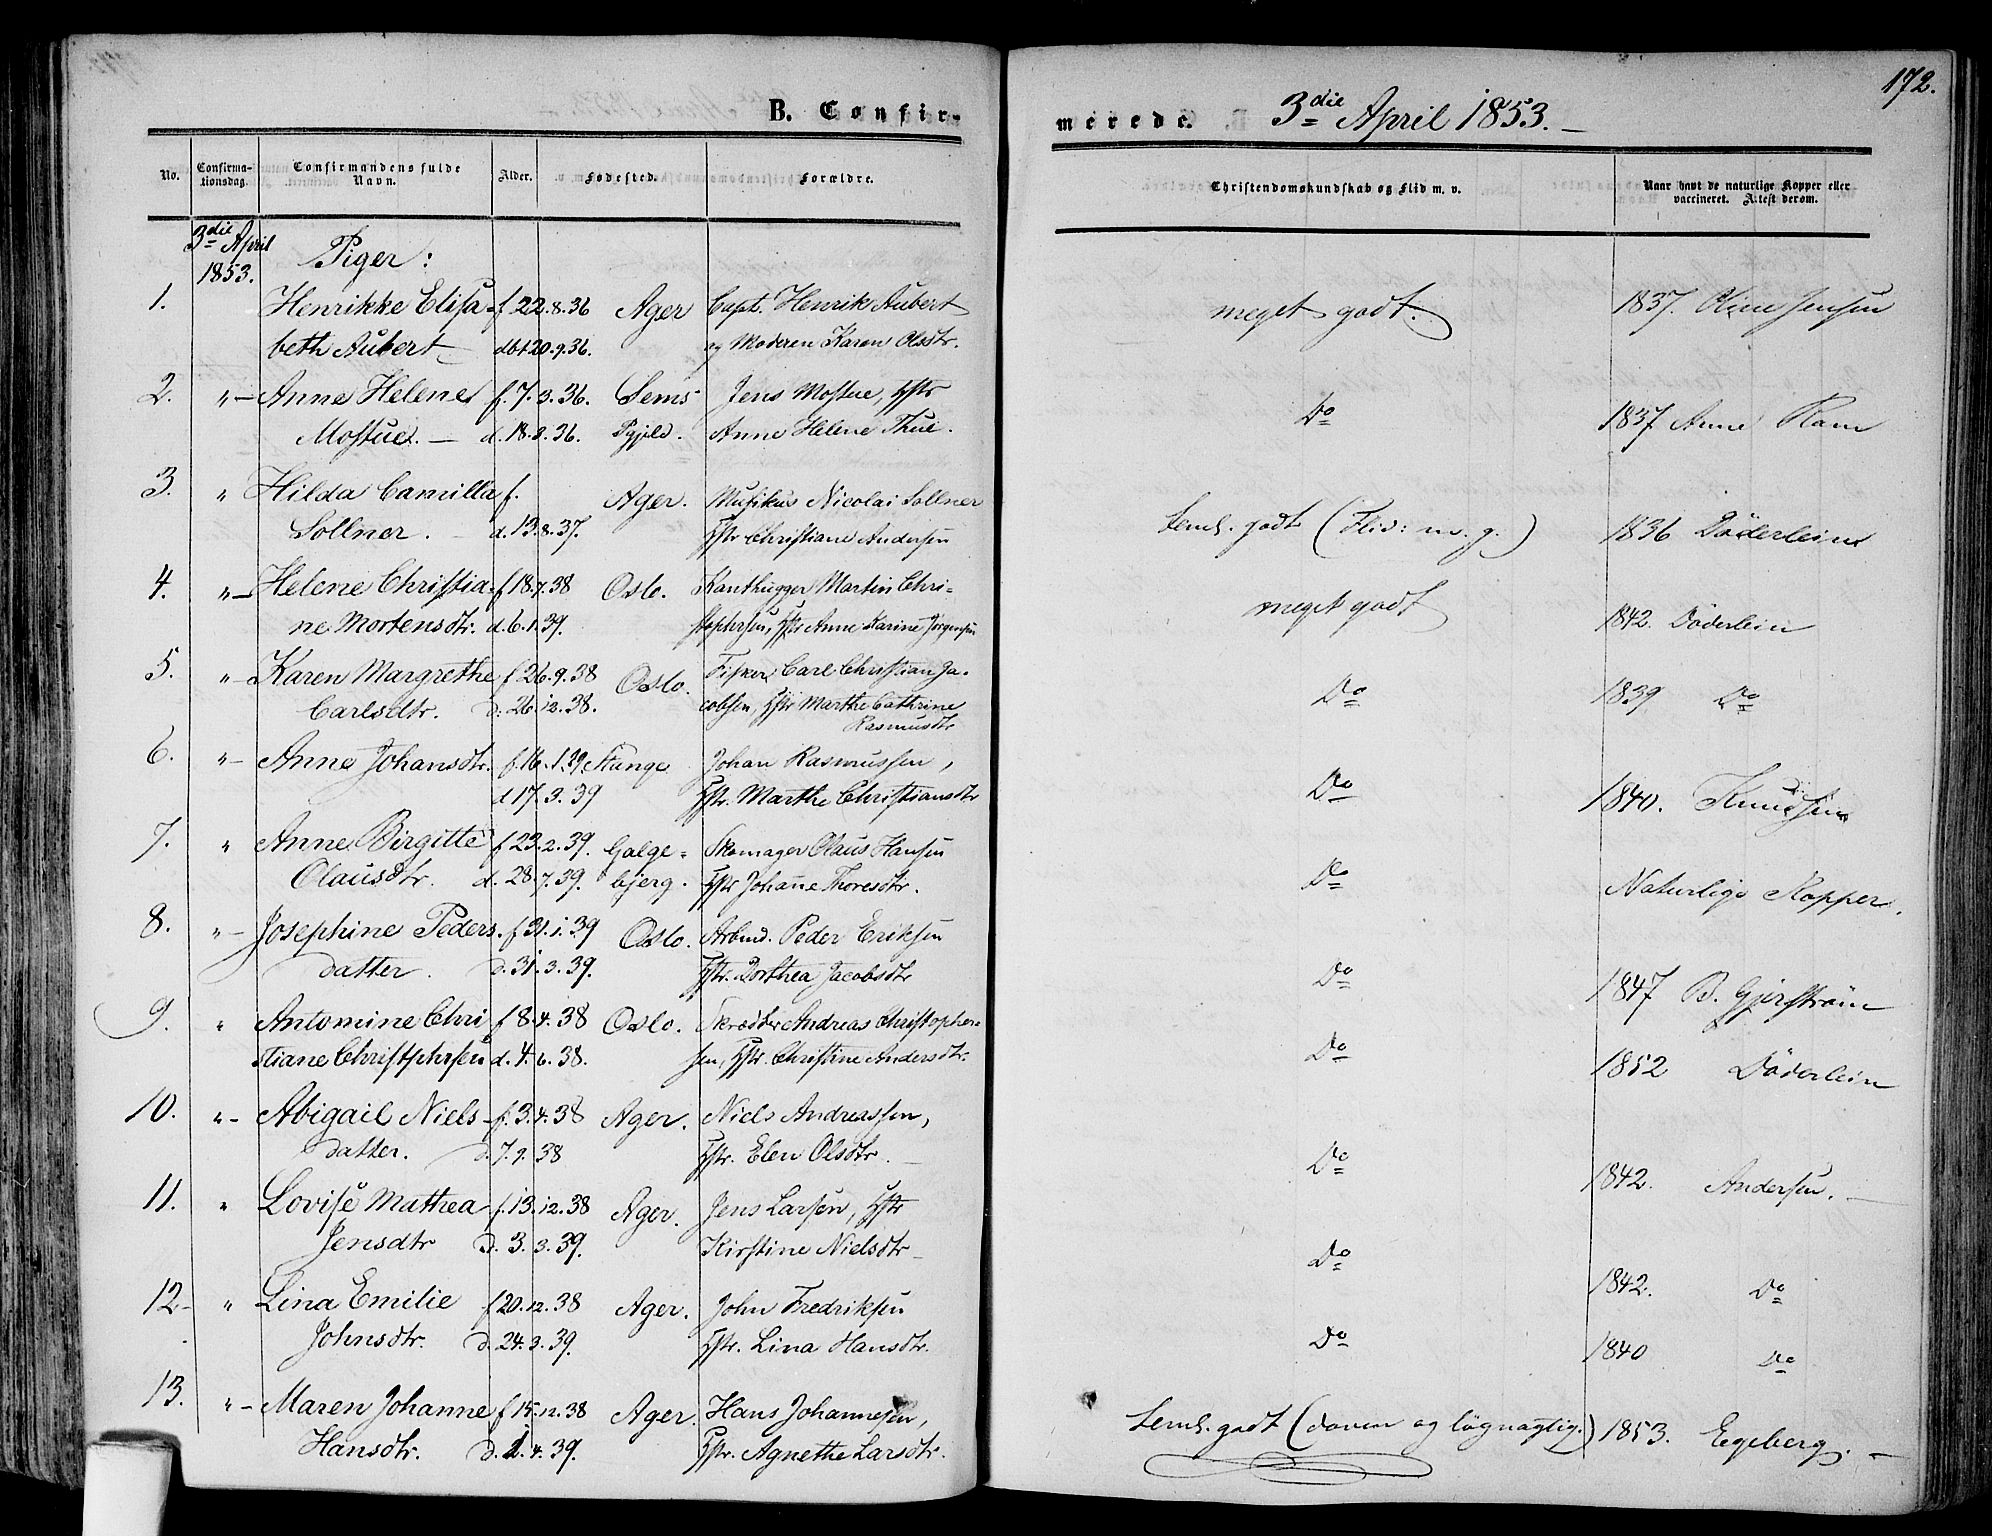 172.
B. Confir-
merede. 3die April 1853. —
No. Confirma-tionsdag. Confirmandens fulde Navn. Alder. Fødested. Forældre. Christendomskundskab og Flid m. v. Naar havt de naturlige Kopper eller vaccineret. Attest derom.
3die April
1853. Piger:
1. Henrikke Elisa- f 22.8.36 Ager Capt. Henrik Aubert meget godt. 1837. Oline Jensen
beth Aubert dbt 20.9.36. og Moderen Karen Olsdtr.
2. "— Anne Helene f. 7.3.36. Sems Jens Mostue, Hstr Do 1837 Anne Ram
Mostue. — d. 18.3.36. Pgjeld. Anne Helene Thue.
3. " Hilda Camilla f. Ager. Musikus Nicolai Sollner Teml. godt (Flid: m. g.) 1836 Döderlein
Sollner. — d. 13.8.37. Hstr Christiane Andersen
4. "— Helene Christia- f 18.7.38 Oslo. Kanthugger Martin Chri- meget godt 1842. Döderlein
ne Mortensdtr. d. 6.1.39. stophersen, Hstr Anne Karine Jørgensen
5. "— Karen Margrethe f 26.9.38 Oslo. Fisker Carl Christian Ja- Do 1839 Do
Carlsdtr. d. 26.12.38. cobsen, Hstr Marthe Cathrine
Rasmusdtr
6. "— Anne Johansdtr. f. 16.1.39. Stange Johan Rasmussen, Do 1840. Knudsen
d 17.3.39 Hstr. Marthe Christiansdtr
7. " Anne Birgitte f 23.2.39. Galge- Skomager Olaus Hansen Do Naturlige Kopper.
Olausdtr. d. 28.7.39. bjerg. Hstr Johanne Thoresdtr.
8. "— Josephine Peders- f 31.1.39 Oslo. Arbmd. Peder Eriksen Do 1847 B. Gjerström
datter. d. 31.3.39. Hstr. Dorthea Jacobsdtr
9. " Antomine Chri f 8.4.38 Oslo. Skrædder Andreas Christopher- Do 1852 Döderlein
stiane Christphrsen d. 4.6.38. sen, Hstr. Christine Andersdtr.
10. "- Abigail Niels- f. 3.4.38 Ager. Niels Andreassen, Do 1842. Andersen. —
datter. d. 7.9.38 Hstr. Elen Olsdtr. —
11. " Lovise Mathea f. 13.12.38 Ager. Jens Larsen, Hstr Do 1842. Do
Jensdtr d. 3.3.39. Kirstine Nielsdtr—
12— " Lina Emilie f 20.12.38 Ager. John Fredriksen Do 1840 Do
Johnsdtr. d. 24.3.39. Hstr. Lina Hansdtr.
13. "— Maren Johanne f 15.12.38 Ager. Hans Johannesen, Teml. godt (doven og løgnagtig.) 1853. Egeberg. —
Hansdtr. d. 1.4.39. Hstr. Agnethe Larsdtr.